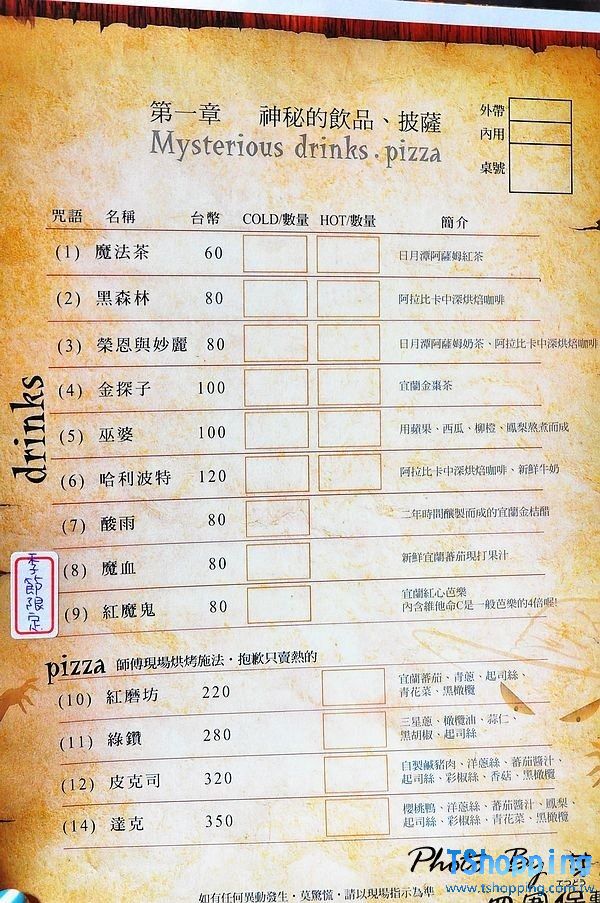 第一章 神秘的飲品、披薩
Mysterious drinks.pizza
外帶
內用
桌號
咒語 名稱 台幣 COLD/數量 HOT/數量 簡介
drinks
(1) 魔法茶 60 日月潭阿薩姆紅茶
(2) 黑森林 80 阿拉比卡中深烘焙咖啡
(3) 榮恩與妙麗 80 日月潭阿薩姆奶茶、阿拉比卡中深烘焙咖啡
(4) 金探子 100 宜蘭金棗茶
(5) 巫婆 100 用蘋果、西瓜、柳橙、鳳梨熬煮而成
(6) 哈利波特 120 阿拉比卡中深烘焙咖啡、新鮮牛奶
(7) 酸雨 80 二年時間釀製而成的宜蘭金桔醋
(8) 魔血 80 新鮮宜蘭蕃茄現打果汁
季節限定
(9) 紅魔鬼 80 宜蘭紅心芭樂
內含維他命C是一般芭樂的4倍喔!
pizza 師傅現場烘烤施法·抱歉只賣熱的
(10) 紅磨坊 220 宜蘭蕃茄、青蔥、起司絲、
青花菜、黑橄欖
(11) 綠鑽 280 三星蔥、橄欖油、蒜仁、
黑胡椒、起司絲
(12) 皮克司 320 自製鹹豬肉、洋蔥絲、蕃茄醬汁、
起司絲、彩椒絲、香菇、黑橄欖
(14) 達克 350 櫻桃鴨、洋蔥絲、蕃茄醬汁、鳳梨、
起司絲、彩椒絲、青花菜、黑橄欖
Photo By
TShopping
www.tshopping.com.tw
如有任何異動發生·莫驚慌·請以現場指示為準